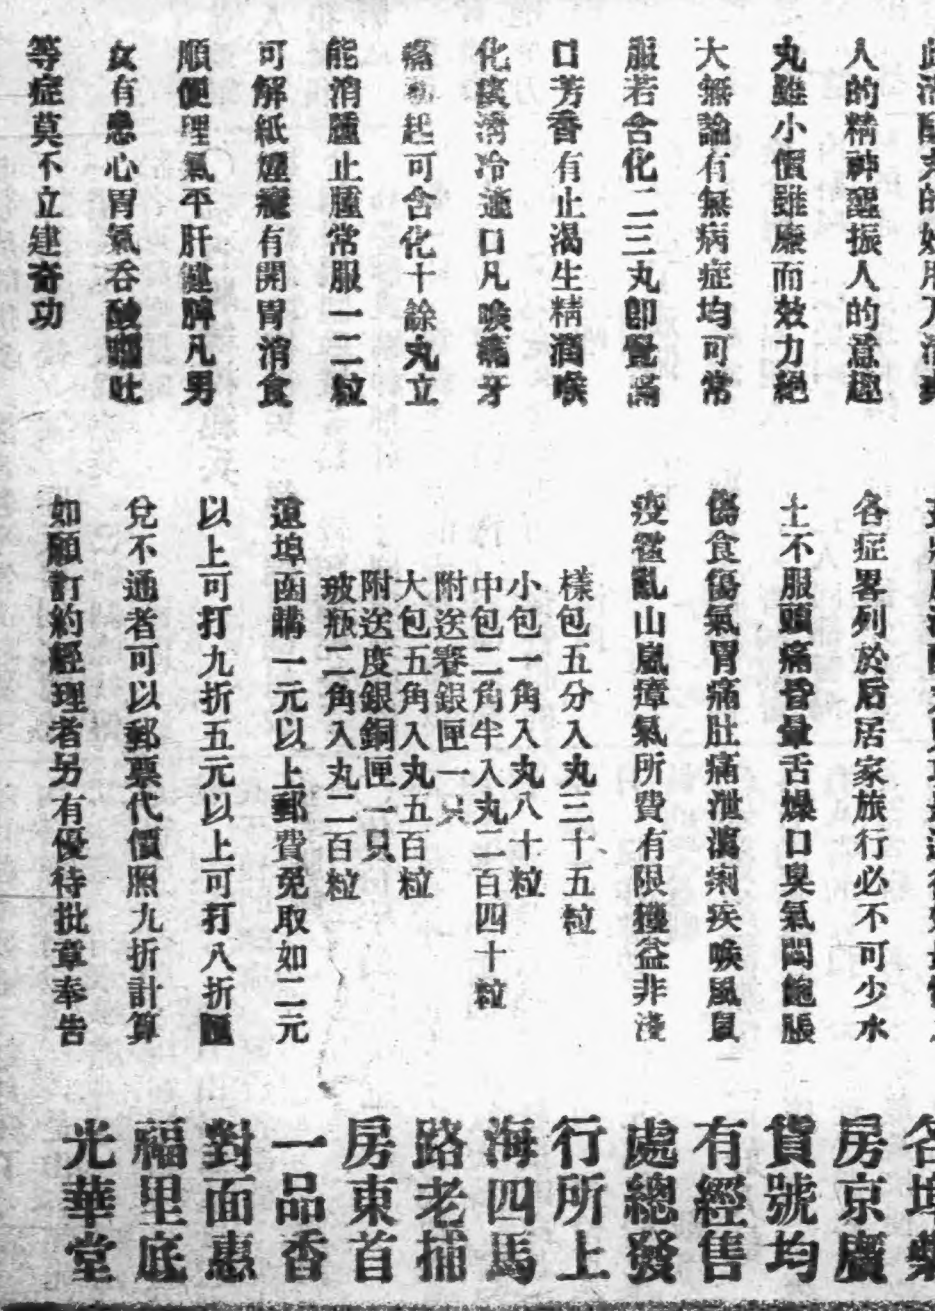 人的精神醒振人的意趣
丸雖小價雖廉而效力絕
大無論有無病症均可常
服若含化二三丸卽覺滿
口芳香有止渴生精潤喉
化痰淸冷適口凡喉痛牙
痛初起可含化十餘丸立
能消腫止腫常服一二粒
可解紙煙癮有開胃消食
順便理氣平肝健脾凡男
女有患心胃氣吞酸嘔吐
等症莫不立建奇功
各症畧列於后居家旅行必不可少水
土不服頭痛昏暈舌燥口臭氣悶飽脹
傷食傷氣胃痛肚痛泄瀉痢疾喉風鼠
疫霍亂山嵐瘴氣所費有限獲益非淺
樣包五分入丸三十五粒
小包一角入丸八十粒
中包二角半入丸二百四十粒
附送賽銀匣一只
大包五角入丸五百粒
附送度銀銅匣一只
玻瓶二角入丸二百粒
遠埠函購一元以上郵費免取如二元
以上可打九折五元以上可打八折匯
兌不通者可以郵票代價照九折計算
如願訂約經理者另有優待批章奉告
各埠藥
房京廣
貨號均
有經售
處總發
行所上
海四馬
路老捕
房東首
一品香
對面惠
福里底
光華堂